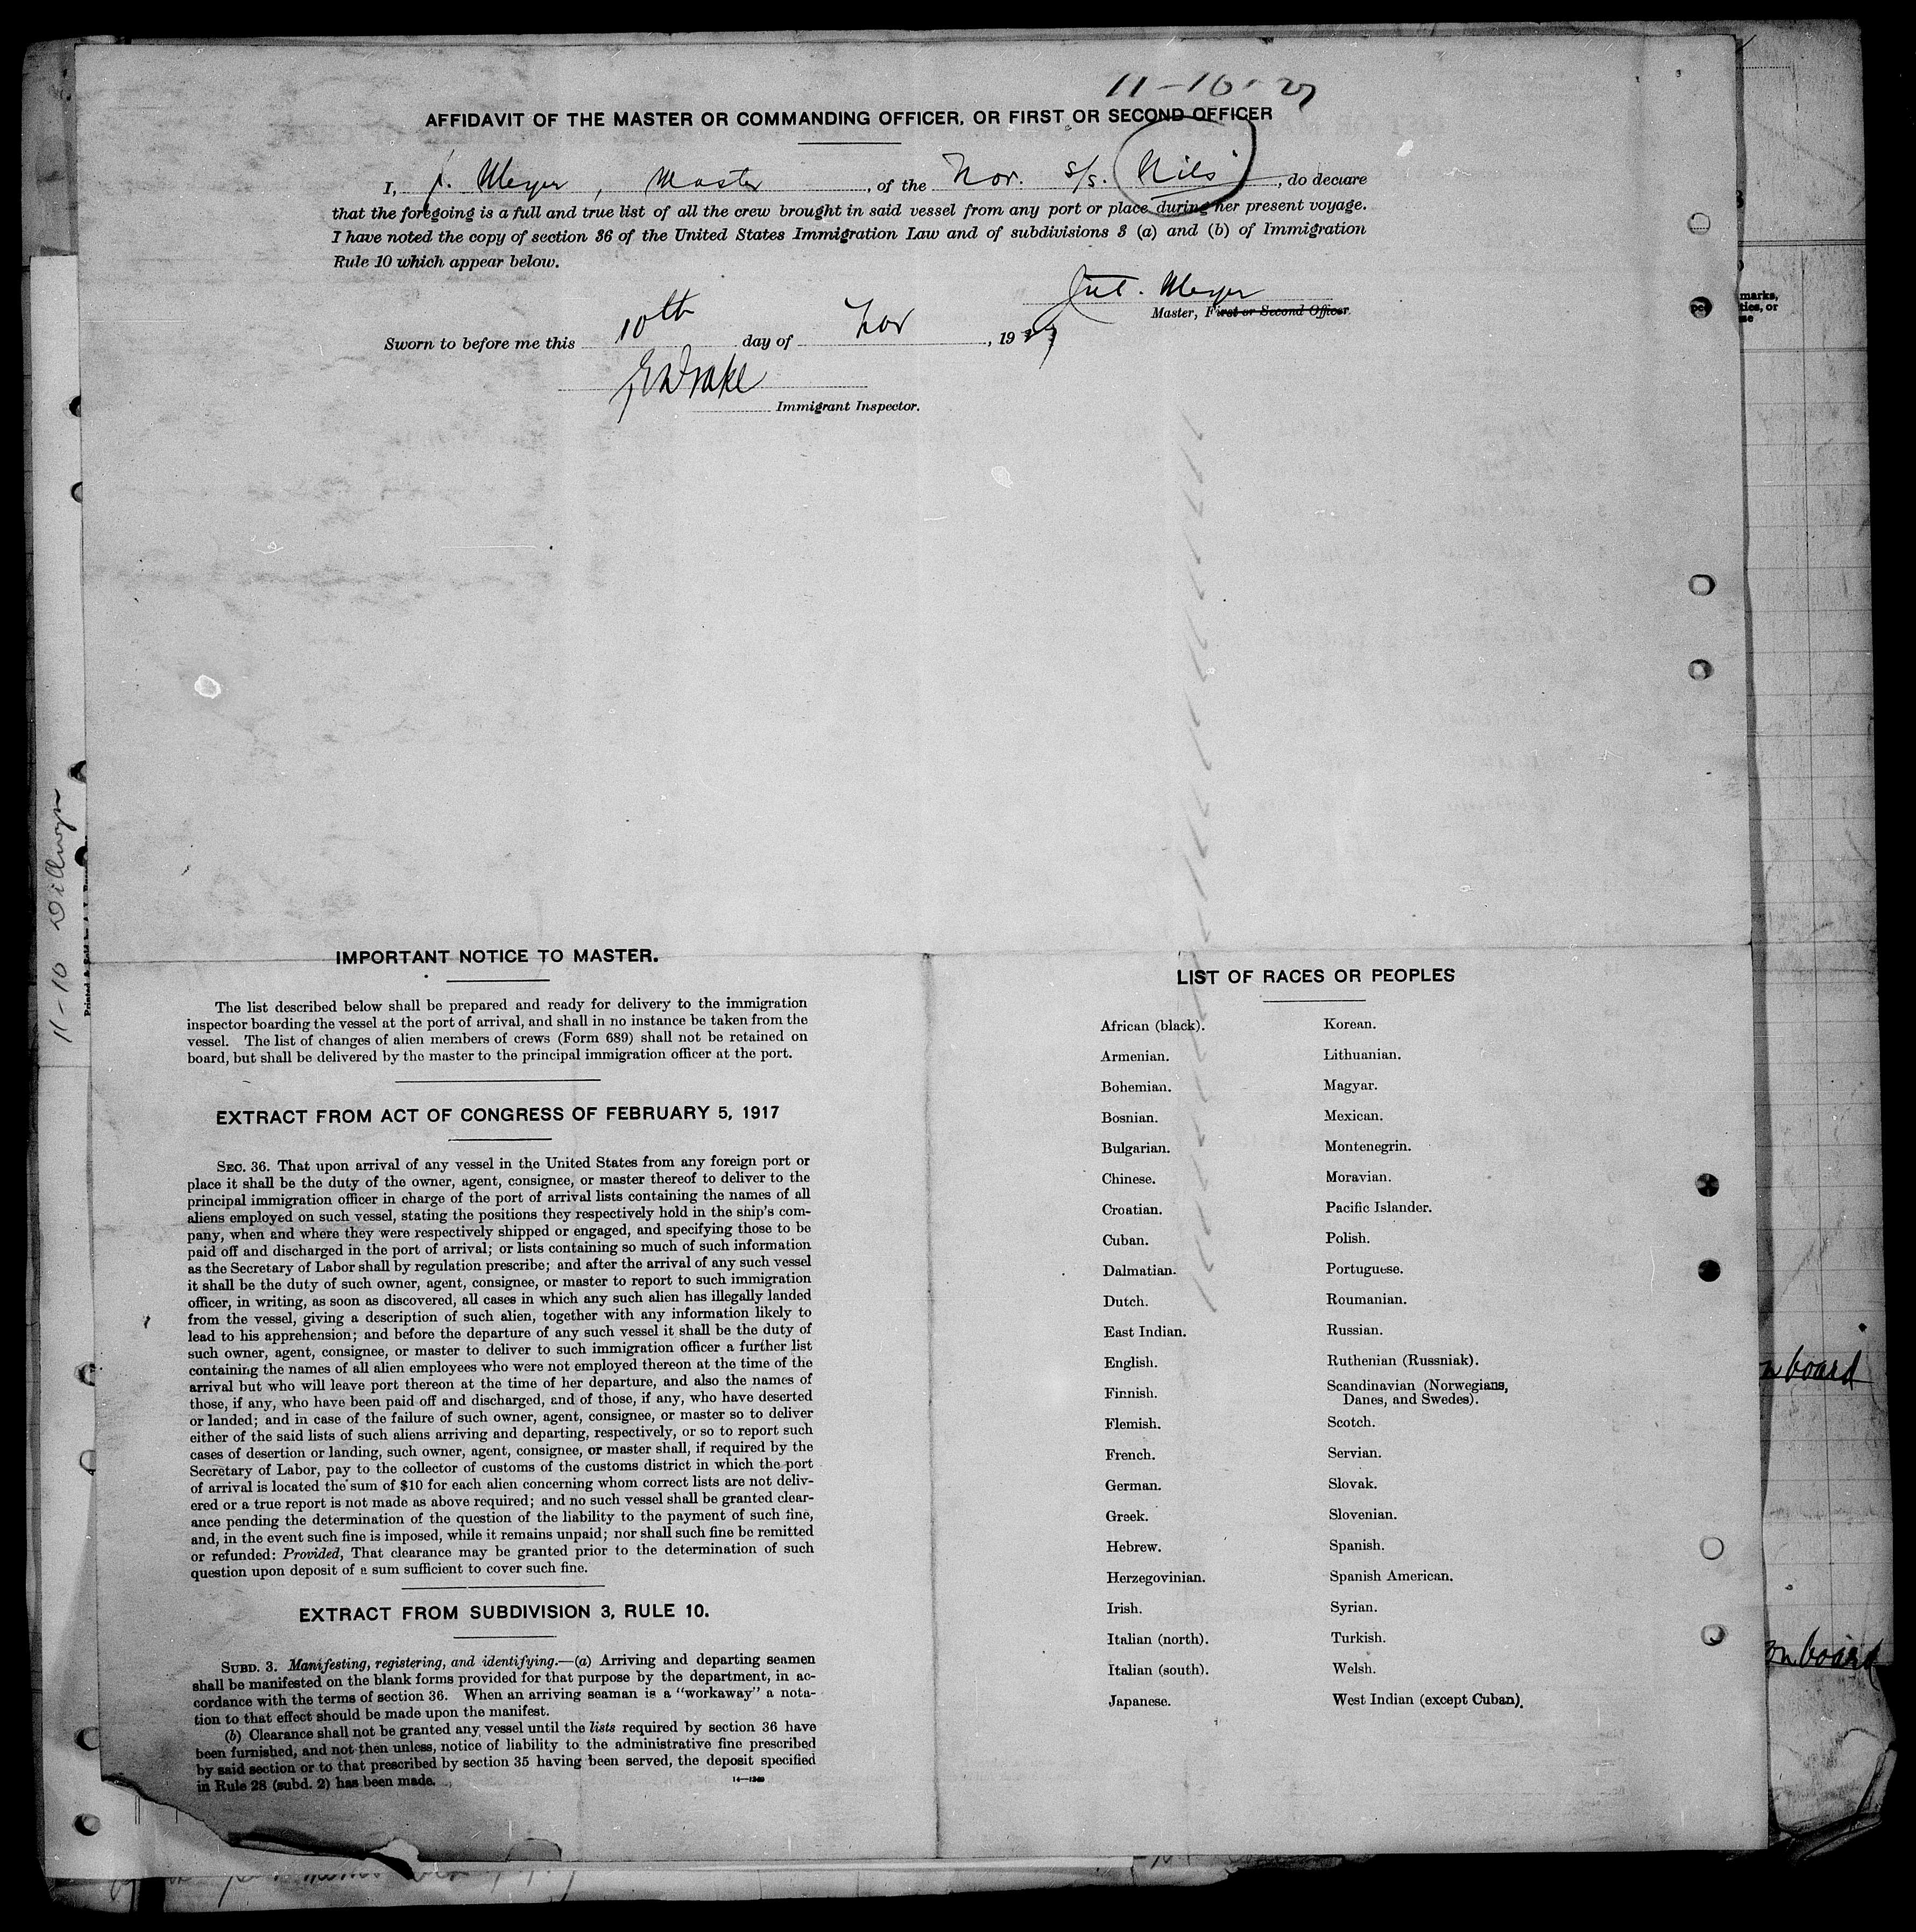 11-10-27
AFFIDAVIT OF THE MASTER OR COMMANDING OFFICER, OR FIRST OR SECOND OFFICER
I, J. Meyer, Master, of the Nor. s/s. Nils, do declare
that the foregoing is a full and true list of all the crew brought in said vessel from any port or place during her present voyage.
I have noted the copy of section 36 of the United States Immigration Law and of subdivisions 3 (a) and (b) of Immigration
Rule 10 which appear below.
Jul. Meyer
Master, First or Second Officer.
Sworn to before me this 10th day of Nov, 1927
Drake
Immigrant Inspector.
marks,
ties, or
11-10 Dillwyn
IMPORTANT NOTICE TO MASTER.
The list described below shall be prepared and ready for delivery to the immigration
inspector boarding the vessel at the port of arrival, and shall in no instance be taken from the
vessel. The list of changes of alien members of crews (Form 689) shall not be retained on
board, but shall be delivered by the master to the principal immigration officer at the port.
EXTRACT FROM ACT OF CONGRESS OF FEBRUARY 5, 1917
SEC. 36. That upon arrival of any vessel in the United States from any foreign port or
place it shall be the duty of the owner, agent, consignee, or master thereof to deliver to the
principal immigration officer in charge of the port of arrival lists containing the names of all
aliens employed on such vessel, stating the positions they respectively hold in the ship's com-
pany, when and where they were respectively shipped or engaged, and specifying those to be
paid off and discharged in the port of arrival; or lists containing so much of such information
as the Secretary of Labor shall by regulation prescribe; and after the arrival of any such vessel
it shall be the duty of such owner, agent, consignee, or master to report to such immigration
officer, in writing, as soon as discovered, all cases in which any such alien has illegally landed
from the vessel, giving a description of such alien, together with any information likely to
lead to his apprehension; and before the departure of any such vessel it shall be the duty of
such owner, agent, consignee, or master to deliver to such immigration officer a further list
containing the names of all alien employees who were not employed thereon at the time of the
arrival but who will leave port thereon at the time of her departure, and also the names of
those, if any, who have been paid off and discharged, and of those, if any, who have deserted
or landed; and in case of the failure of such owner, agent, consignee, or master so to deliver
either of the said lists of such aliens arriving and departing, respectively, or so to report such
cases of desertion or landing, such owner, agent, consignee, or master shall, if required by the
Secretary of Labor, pay to the collector of customs of the customs district in which the port
of arrival is located the sum of $10 for each alien concerning whom correct lists are not deliv-
ered or a true report is not made as above required; and no such vessel shall be granted clear-
ance pending the determination of the question of the liability to the payment of such fine,
and, in the event such fine is imposed, while it remains unpaid; nor shall such fine be remitted
or refunded: Provided, That clearance may be granted prior to the determination of such
question upon deposit of a sum sufficient to cover such fine.
EXTRACT FROM SUBDIVISION 3, RULE 10.
SUBD. 3. Manifesting, registering, and identifying.—(a) Arriving and departing seamen
shall be manifested on the blank forms provided for that purpose by the department, in ac-
cordance with the terms of section 36. When an arriving seaman is a "workaway" a nota-
tion to that effect should be made upon the manifest.
(b) Clearance shall not be granted any vessel until the lists required by section 36 have
been furnished, and not then unless, notice of liability to the administrative fine prescribed
by said section or to that prescribed by section 35 having been served, the deposit specified
in Rule 28 (subd. 2) has been made.
14—1240
LIST OF RACES OR PEOPLES
African (black).
Armenian.
Bohemian.
Bosnian.
Bulgarian.
Chinese.
Croatian.
Cuban.
Dalmatian.
Dutch.
East Indian.
English.
Finnish.
Flemish.
French.
German.
Greek.
Hebrew.
Herzegovinian.
Irish.
Italian (north).
Italian (south).
Japanese.
Korean.
Lithuanian.
Magyar.
Mexican.
Montenegrin.
Moravian.
Pacific Islander.
Polish.
Portuguese.
Roumanian.
Russian.
Ruthenian (Russniak).
Scandinavian (Norwegians,
Danes, and Swedes).
Scotch.
Servian.
Slovak.
Slovenian.
Spanish.
Spanish American.
Syrian.
Turkish.
Welsh.
West Indian (except Cuban).
board
on board